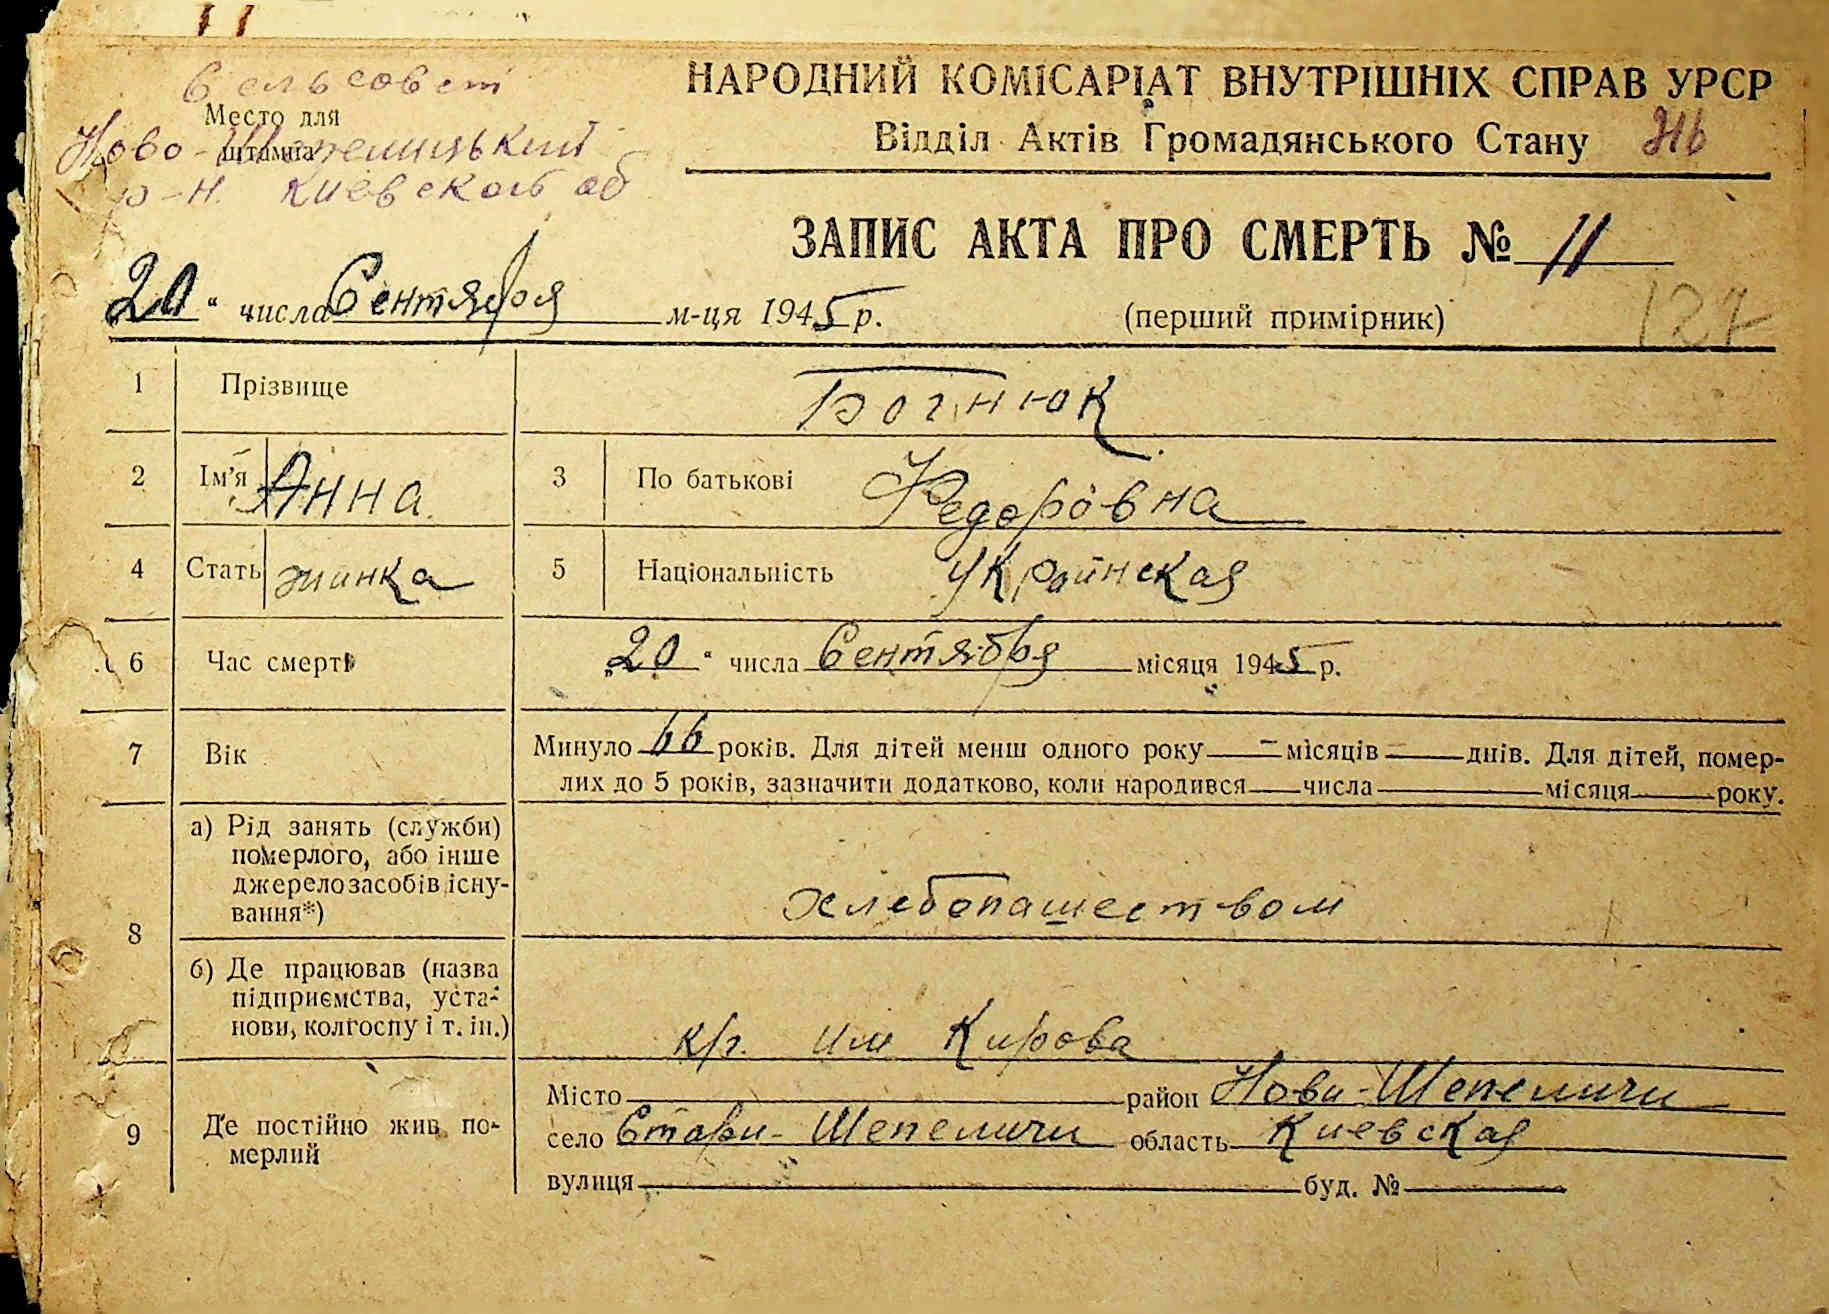 Сельсовет
Место для
штампа
Ново-Шепелицький
р-н. Киевской об
НАРОДНИЙ КОМІСАРІАТ ВНУТРІШНІХ СПРАВ УРСР
Відділ Актів Громадянського Стану
ЗАПИС АКТА ПРО СМЕРТЬ № 11
20 " числа Сентября м-ця 1945 р. (перший примірник)
127
1 Прізвище Богнюк
2 Ім'я Анна 3 По батькові Федоровна
4 Стать жинка 5 Національність Украинская
6 Час смерті „20 " числа Сентября місяця 1945 р.
7 Вік Минуло 66 років. Для дітей менш одного року — місяців — днів. Для дітей, помер-
лих до 5 років, зазначити додатково, коли народився числа місяця року.
8 а) Рід занять (служби)
померлого, або інше
джерело засобів існу-
вання*)
хлебопашеством
б) Де працював (назва
підприємства, уста-
нови, колгоспу і т. ін.)
им Кирова
9 Де постійно жив по-
мерлий
Місто район Нови-Шепеличи
село Стари-Шепеличи область Киевская
вулиця буд. №